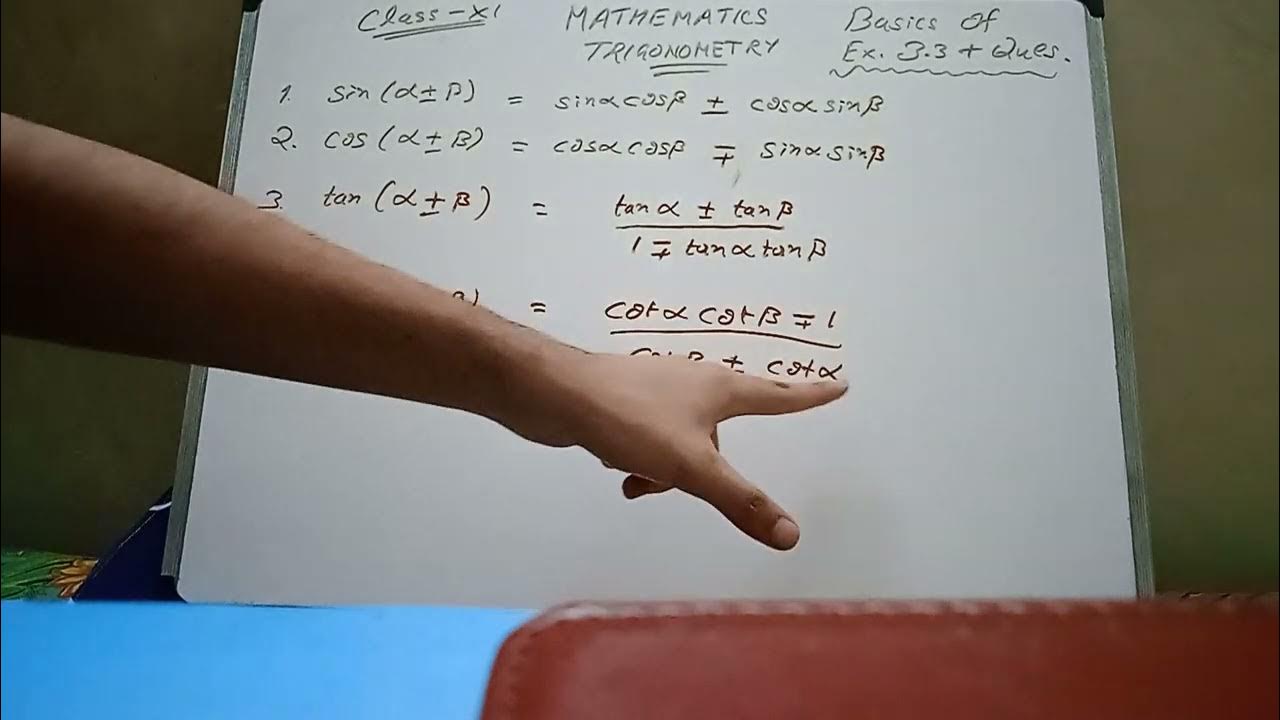 Class-XI MATHEMATICS Basics of
TRIGONOMETRY Ex. 3.3 + Ques.
1. sin(α±β) = sinα cosβ ± cosα sinβ
2. cos(α±β) = cosα cosβ ∓ sinα sinβ
3. tan(α±β) = tanα ± tanβ
1 ∓ tanα tanβ
β) = cotα cotβ ∓ 1
cotβ ± cotα